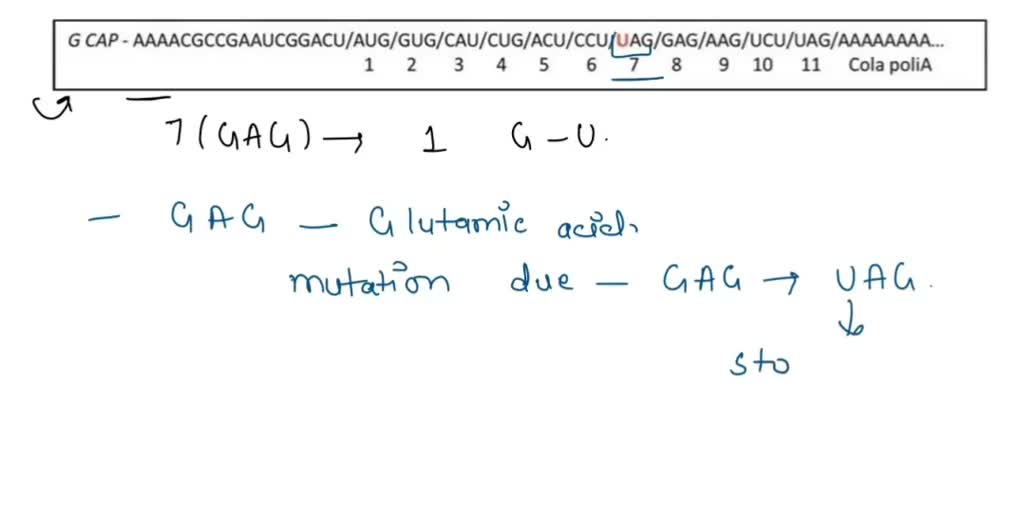 G CAP - AAAACGCCGAAUCGGACU/AUG/GUG/CAU/CUG/ACU/CCU/UAG/GAG/AAG/UCU/UAG/AAAAAAAA...
1 2 3 4 5 6 7 8 9 10 11 Cola poliA
7 (GAG) → 1 G - U.
- GAG - Glutamic acid.
mutation due - GAG → UAG.
↓
sto